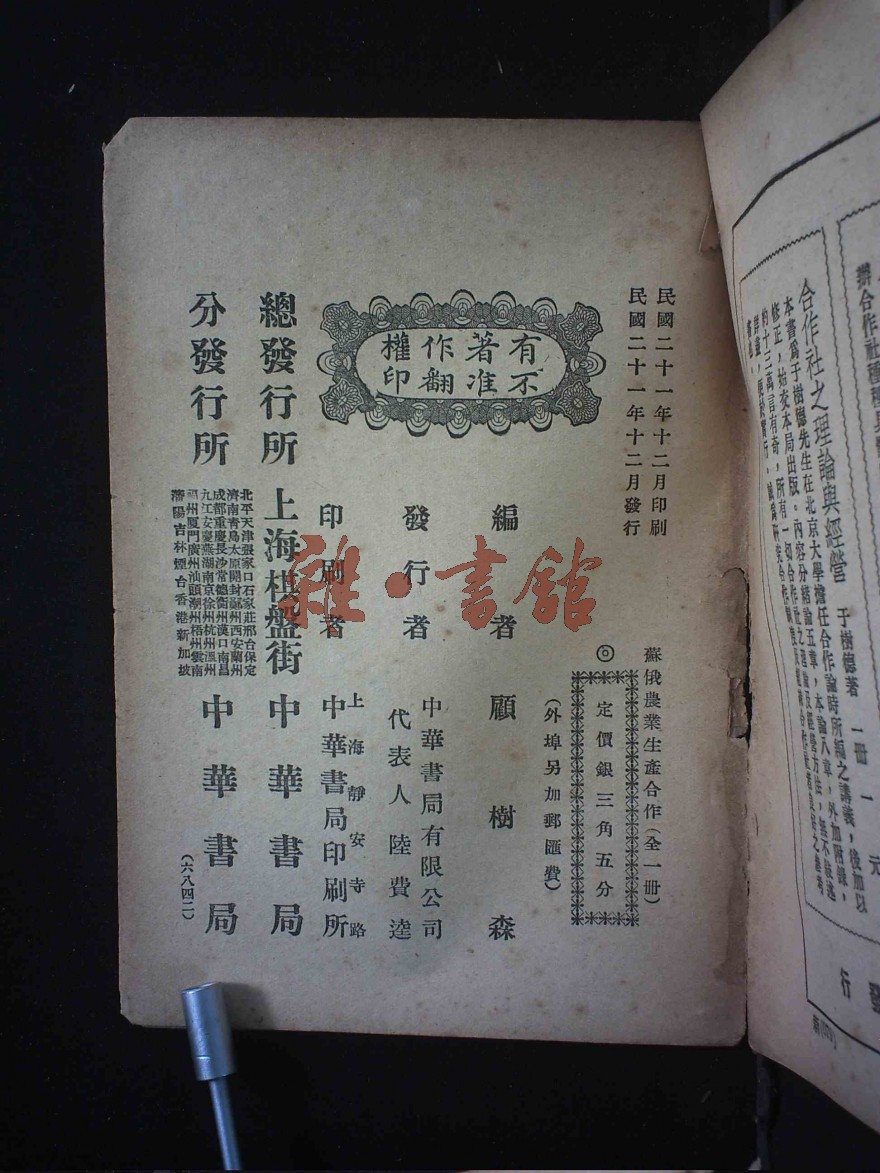 民國二十一年十二月印刷
民國二十一年十二月發行
有著作權
不准翻印
蘇俄農業生產合作(全一冊)
◎定價銀三角五分
(外埠另加郵匯費)
編者 顧樹森
發行者 中華書局有限公司
代表人陸費逵
印刷者 上海靜安寺路
中華書局印刷所
總發行所 上海棋盤街 中華書局
分發行所
北平天津張家口石家莊邢台保定
濟南青島太原開封鄭州西安蘭州
成都重慶長沙常德衡州漢口南昌
九江安慶蕪湖南京徐州杭州溫州
福州厦門廣州汕頭潮州梧州雲南
瀋陽吉林煙台香港新加坡
中華書局
(六八四二)
雜·書館
合作社之理論與經營 于樹德著 一冊 一元
本書爲于樹德先生在北京大學擔任合作論時所編之講義,後加以
修正,始交本局出版。內容分緒論五章,本論八章,外加附錄,
約十三萬言有奇,所有一切合作社之理論及經營方法,無不縷述
發
行